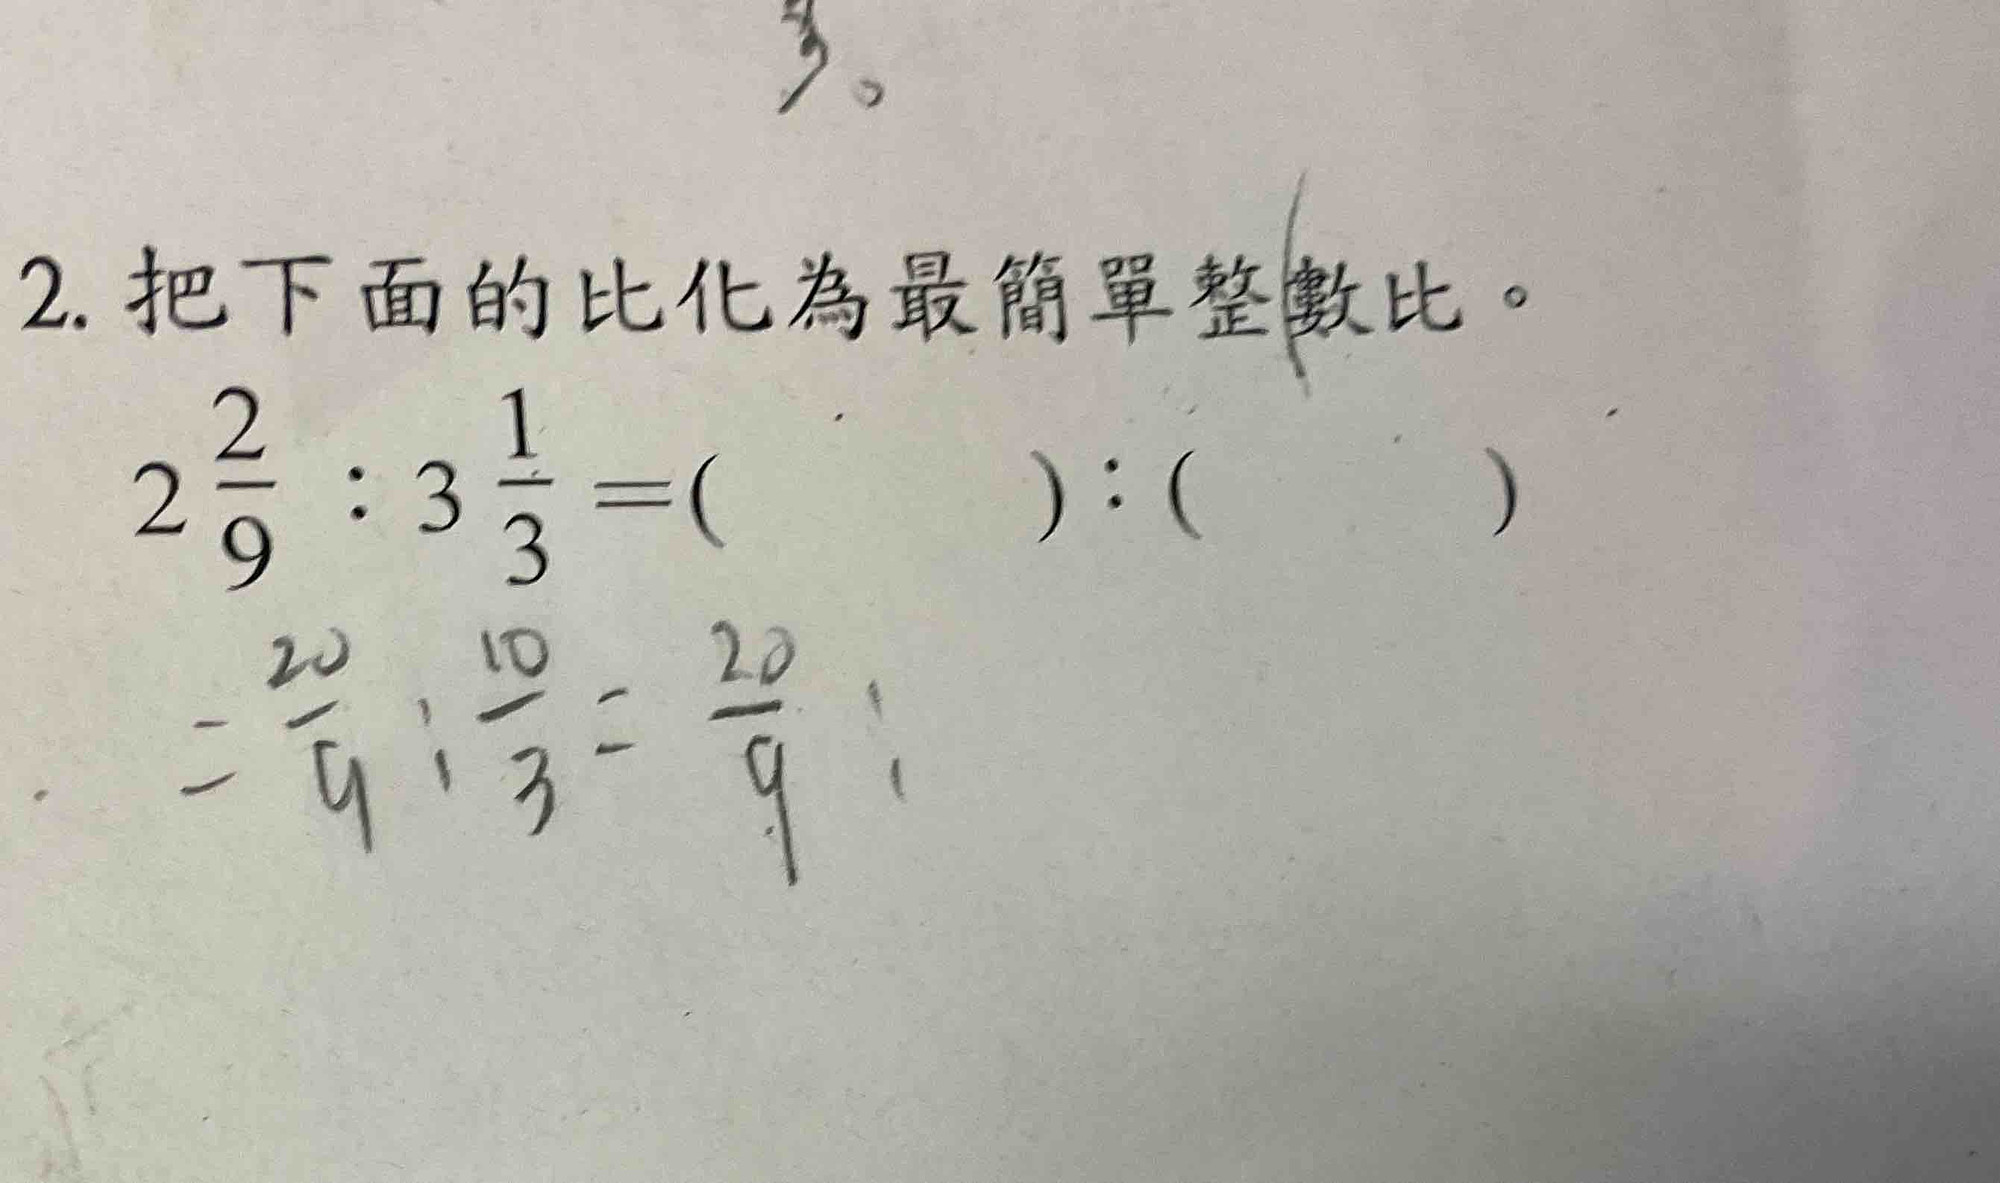 3。
2. 把下面的比化為最簡單整數比。
2 2/9 : 3 1/3 =(   ) : (   )
= 20/9 : 10/3 = 20/9 :